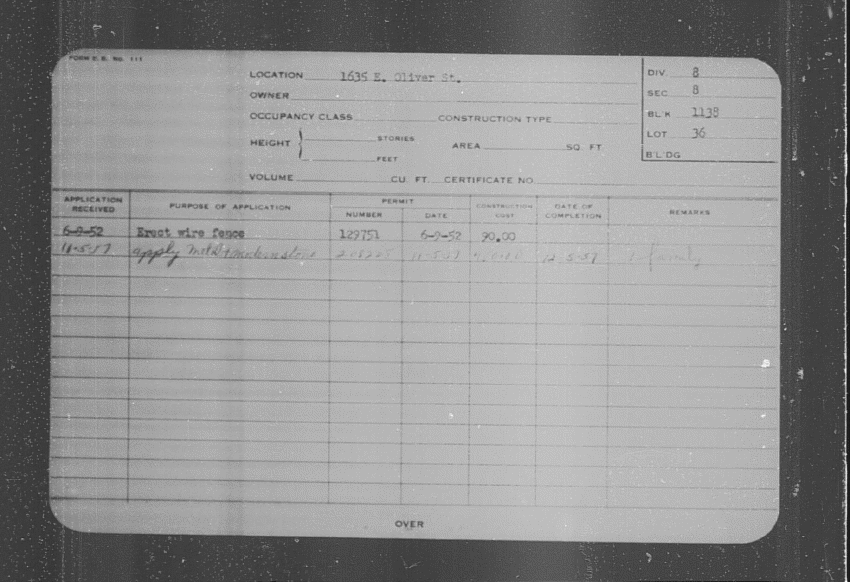 FORM E. B. NO. 111
LOCATION 1635 E. Oliver St. DIV. 8
OWNER SEC. 8
OCCUPANCY CLASS CONSTRUCTION TYPE BL'K 1138
HEIGHT STORIES AREA SQ. FT. LOT 36
FEET B'L'DG
VOLUME CU. FT. CERTIFICATE NO.
APPLICATION RECEIVED PURPOSE OF APPLICATION PERMIT NUMBER DATE CONSTRUCTION COST DATE OF COMPLETION REMARKS
6-9-52 Erect wire fence 129751 6-9-52 90.00
11-5-57 apply 11-5-57 12-5-57 family
OVER